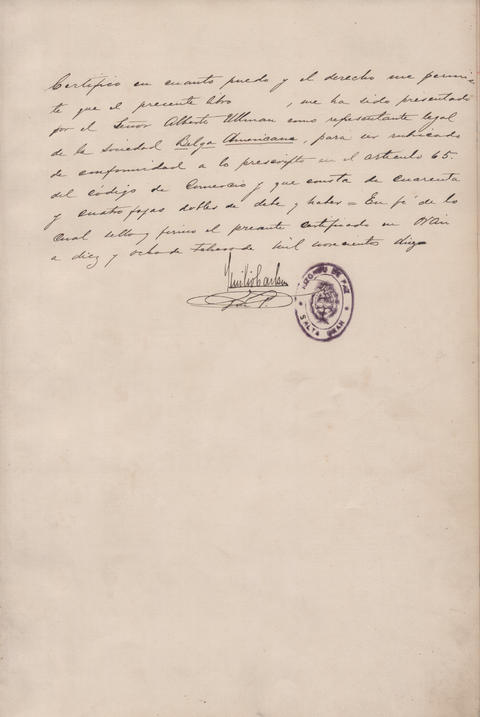 Certifico en cuanto puedo y el derecho me permi-
te que el presente libro , me ha sido presentado
por el Señor Alberto Ullman como representante legal
de la Sociedad Belga Americana, para ser rubricado
de conformidad a lo prescripto en el articulo 65.
del código de Comercio y que consta de cuarenta
y cuatro fojas dobles de debe y haber = En fé de lo
cual sello y firmo el presente certificado en Orán
a diez y ocho de Febrero de mil novecientos diez
J. P.
JUZGADO DE PAZ
SALTA ORAN